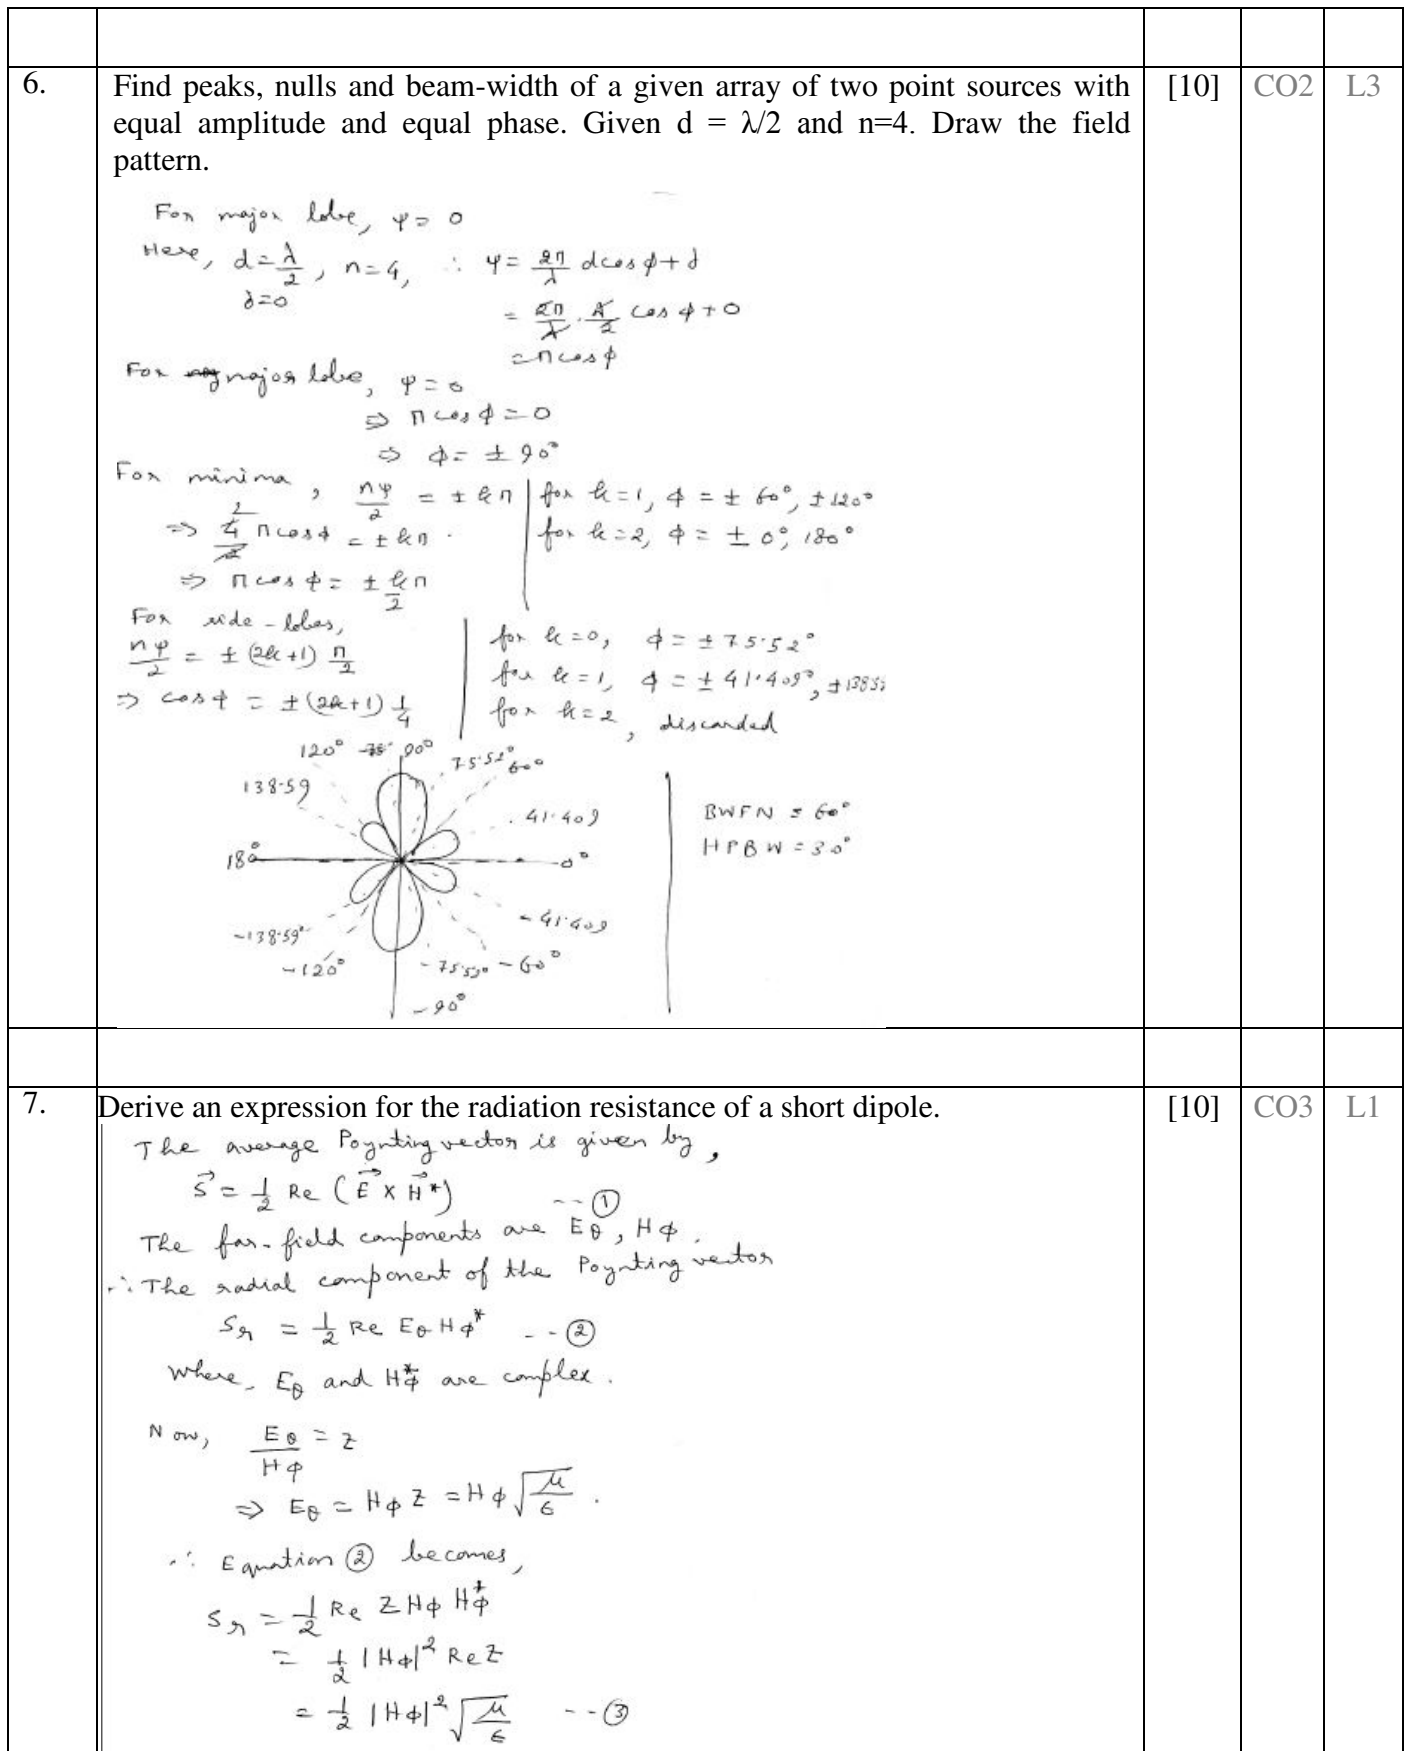 6. Find peaks, nulls and beam-width of a given array of two point sources with [10] CO2 L3
equal amplitude and equal phase. Given d = λ/2 and n=4. Draw the field
pattern.
For major lobe, ψ = 0
Here, d = λ/2, n=4, ∴ ψ = 2π/λ dcosφ + δ
δ=0
= 2π/λ . λ/2 cos φ + 0
= π cos φ
For major lobe, ψ = 0
⇒ π cos φ = 0
⇒ φ = ± 90°
For minima, nψ/2 = ± kπ | for k=1, φ = ± 60°, ±120°
⇒ 4/2 π cosφ = ± kπ. | for k=2, φ = ± 0°, 180°
⇒ π cos φ = ± kπ/2
For side-lobes, | for k=0, φ = ± 75.52°
nψ/2 = ± (2k+1) π/2 | for k=1, φ = ± 41.409°, ±138.5
⇒ cos φ = ± (2k+1) 1/4 | for k=2, discarded
120° 90° 75.52° 60°
138.59
41.409
180° 0°
BWFN = 60°
HPBW = 30°
-41.409
-138.59°
-120° -75.52° -60°
-90°
7. Derive an expression for the radiation resistance of a short dipole. [10] CO3 L1
The average Poynting vector is given by,
S⃗ = 1/2 Re (E⃗ × H⃗*) --①
The far-field components are Eθ, Hφ.
∴ The radial component of the Poynting vector
Sr = 1/2 Re Eθ Hφ* --②
where, Eθ and Hφ* are complex.
Now, Eθ/Hφ = Z
⇒ Eθ = Hφ Z = Hφ √(μ/ϵ).
∴ Equation ② becomes,
Sr = 1/2 Re Z Hφ Hφ*
= 1/2 |Hφ|² Re Z
= 1/2 |Hφ|² √(μ/ϵ) --③